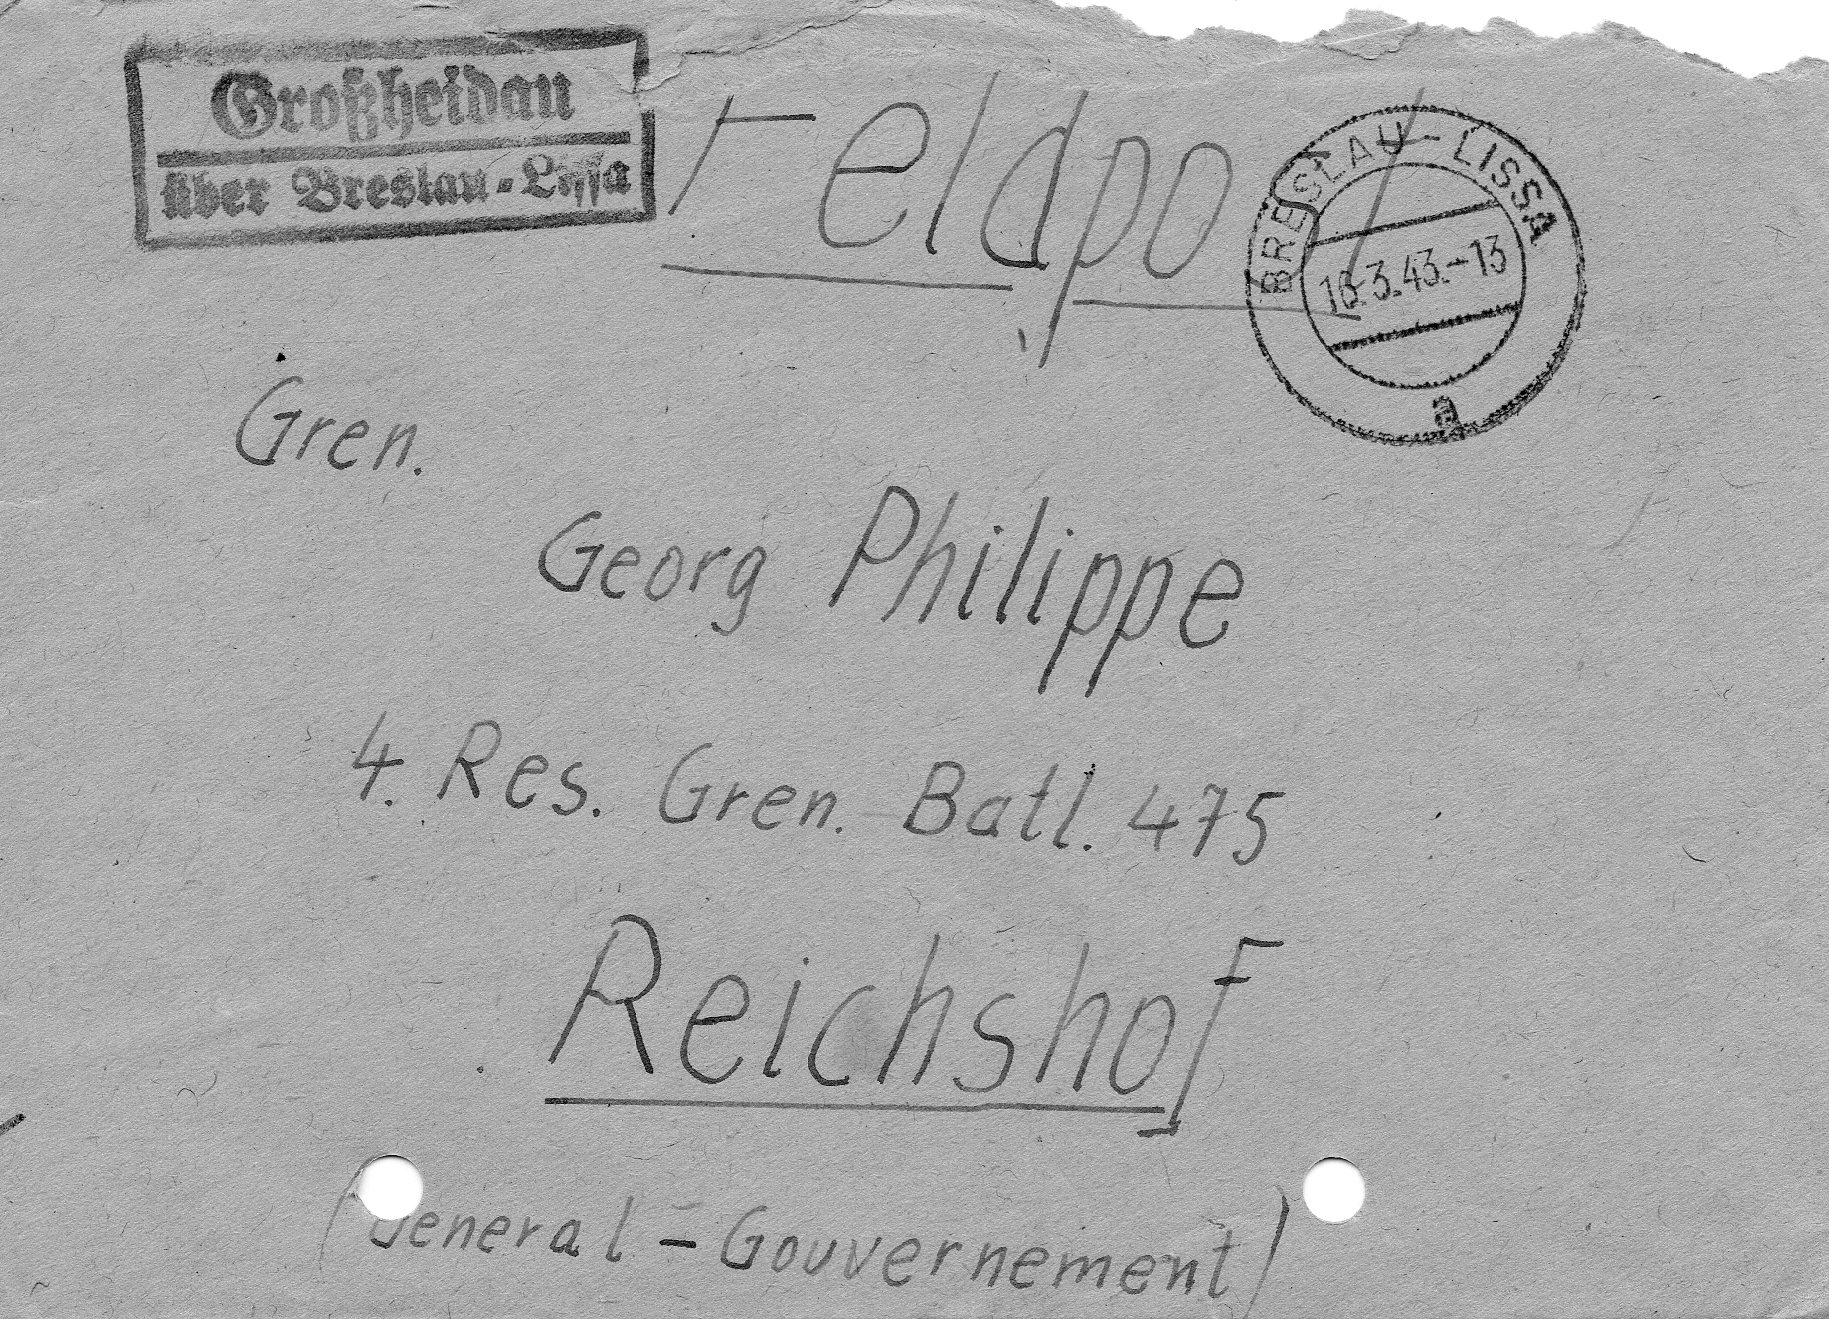 Großheidau
über Breslau-Lissa
Feldpost
BRESLAU-LISSA
16.3.43.-13
a
Gren.
Georg Philippe
4. Res. Gren. Batl. 475
Reichshof
(General-Gouvernement)